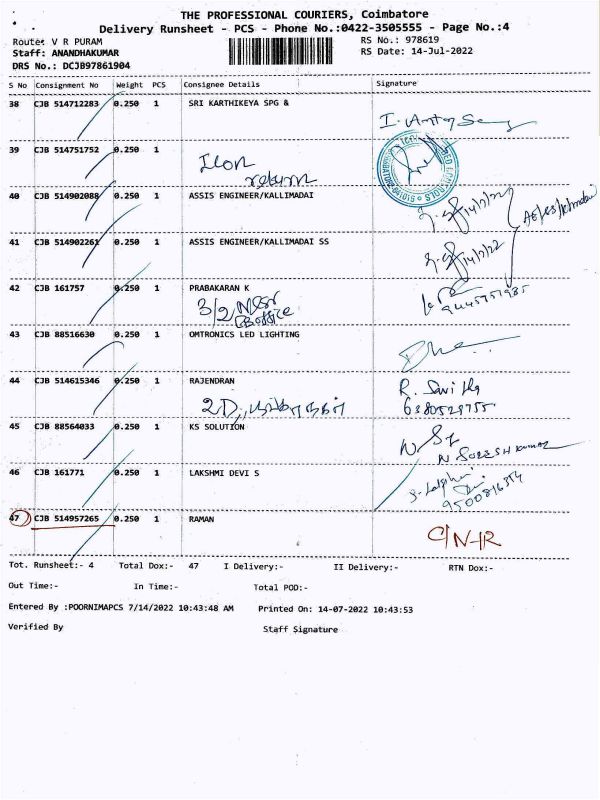 THE PROFESSIONAL COURIERS, Coimbatore
Delivery Runsheet - PCS - Phone No.:0422-3505555 - Page No.:4
Route: V R PURAM RS No.: 978619
Staff: ANANDHAKUMAR RS Date: 14-Jul-2022
DRS No.: DCJB97861904
S No Consignment No Weight PCS Consignee Details Signature
38 CJB 514712283 0.250 1 SRI KARTHIKEYA SPG &
39 CJB 514751752 0.250 1
return
40 CJB 514902088 0.250 1 ASSIS ENGINEER/KALLIMADAI
14/7/22
41 CJB 514902261 0.250 1 ASSIS ENGINEER/KALLIMADAI SS
14/7/22
42 CJB 161757 0.250 1 PRABAKARAN K
3/2, NGGO
EB office
43 CJB 88516630 0.250 1 OMTRONICS LED LIGHTING
44 CJB 514615346 0.250 1 RAJENDRAN
2D,
45 CJB 88564033 0.250 1 KS SOLUTION
N SURESH KUMAR
46 CJB 161771 0.250 1 LAKSHMI DEVI S
47 CJB 514957265 0.250 1 RAMAN
C/N-R
Tot. Runsheet:- 4 Total Dox:- 47 I Delivery:- II Delivery:- RTN Dox:-
Out Time:- In Time:- Total POD:-
Entered By :POORNIMAPCS 7/14/2022 10:43:48 AM Printed On: 14-07-2022 10:43:53
Verified By Staff Signature